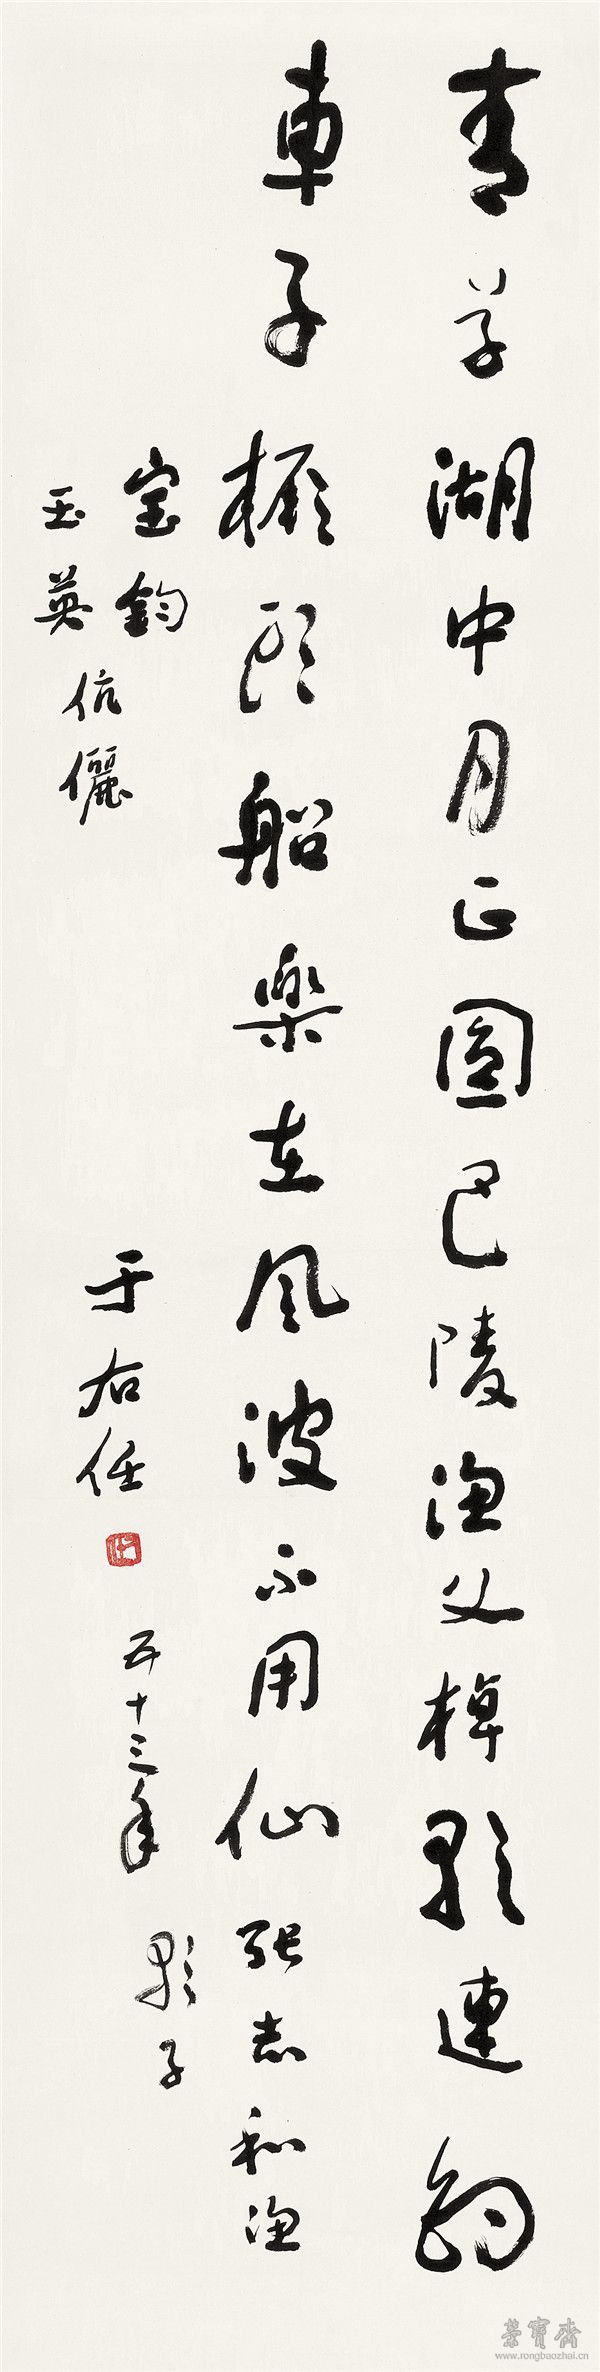 青草湖中月正圓巴陵漁父棹歌連釣
車子橛頭船樂在風波不用仙 張志和漁
歌子
宝鈞
玉英
伉儷
于右任
五十三年
榮寶齋
www.rongbaozhai.cn